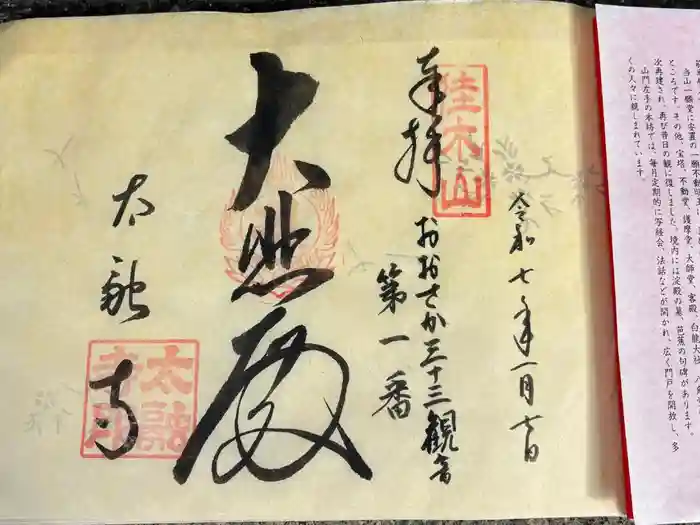 ころです。その他、宝塔、不動堂、護摩堂、大師堂、客殿、白龍大社
次再建され、再び昔日の観に復しました。境内には淀殿の墓、芭蕉の句碑があります。
山門左手の本坊では、毎月定期的に写経会、法話などが開かれ、広く門戸を開放し、多
くの人々に親しまれています。
令和七年一月七日
奉拝
佳木山
おおさか三十三観音
第一番
大悲殿
太融寺
太融寺印